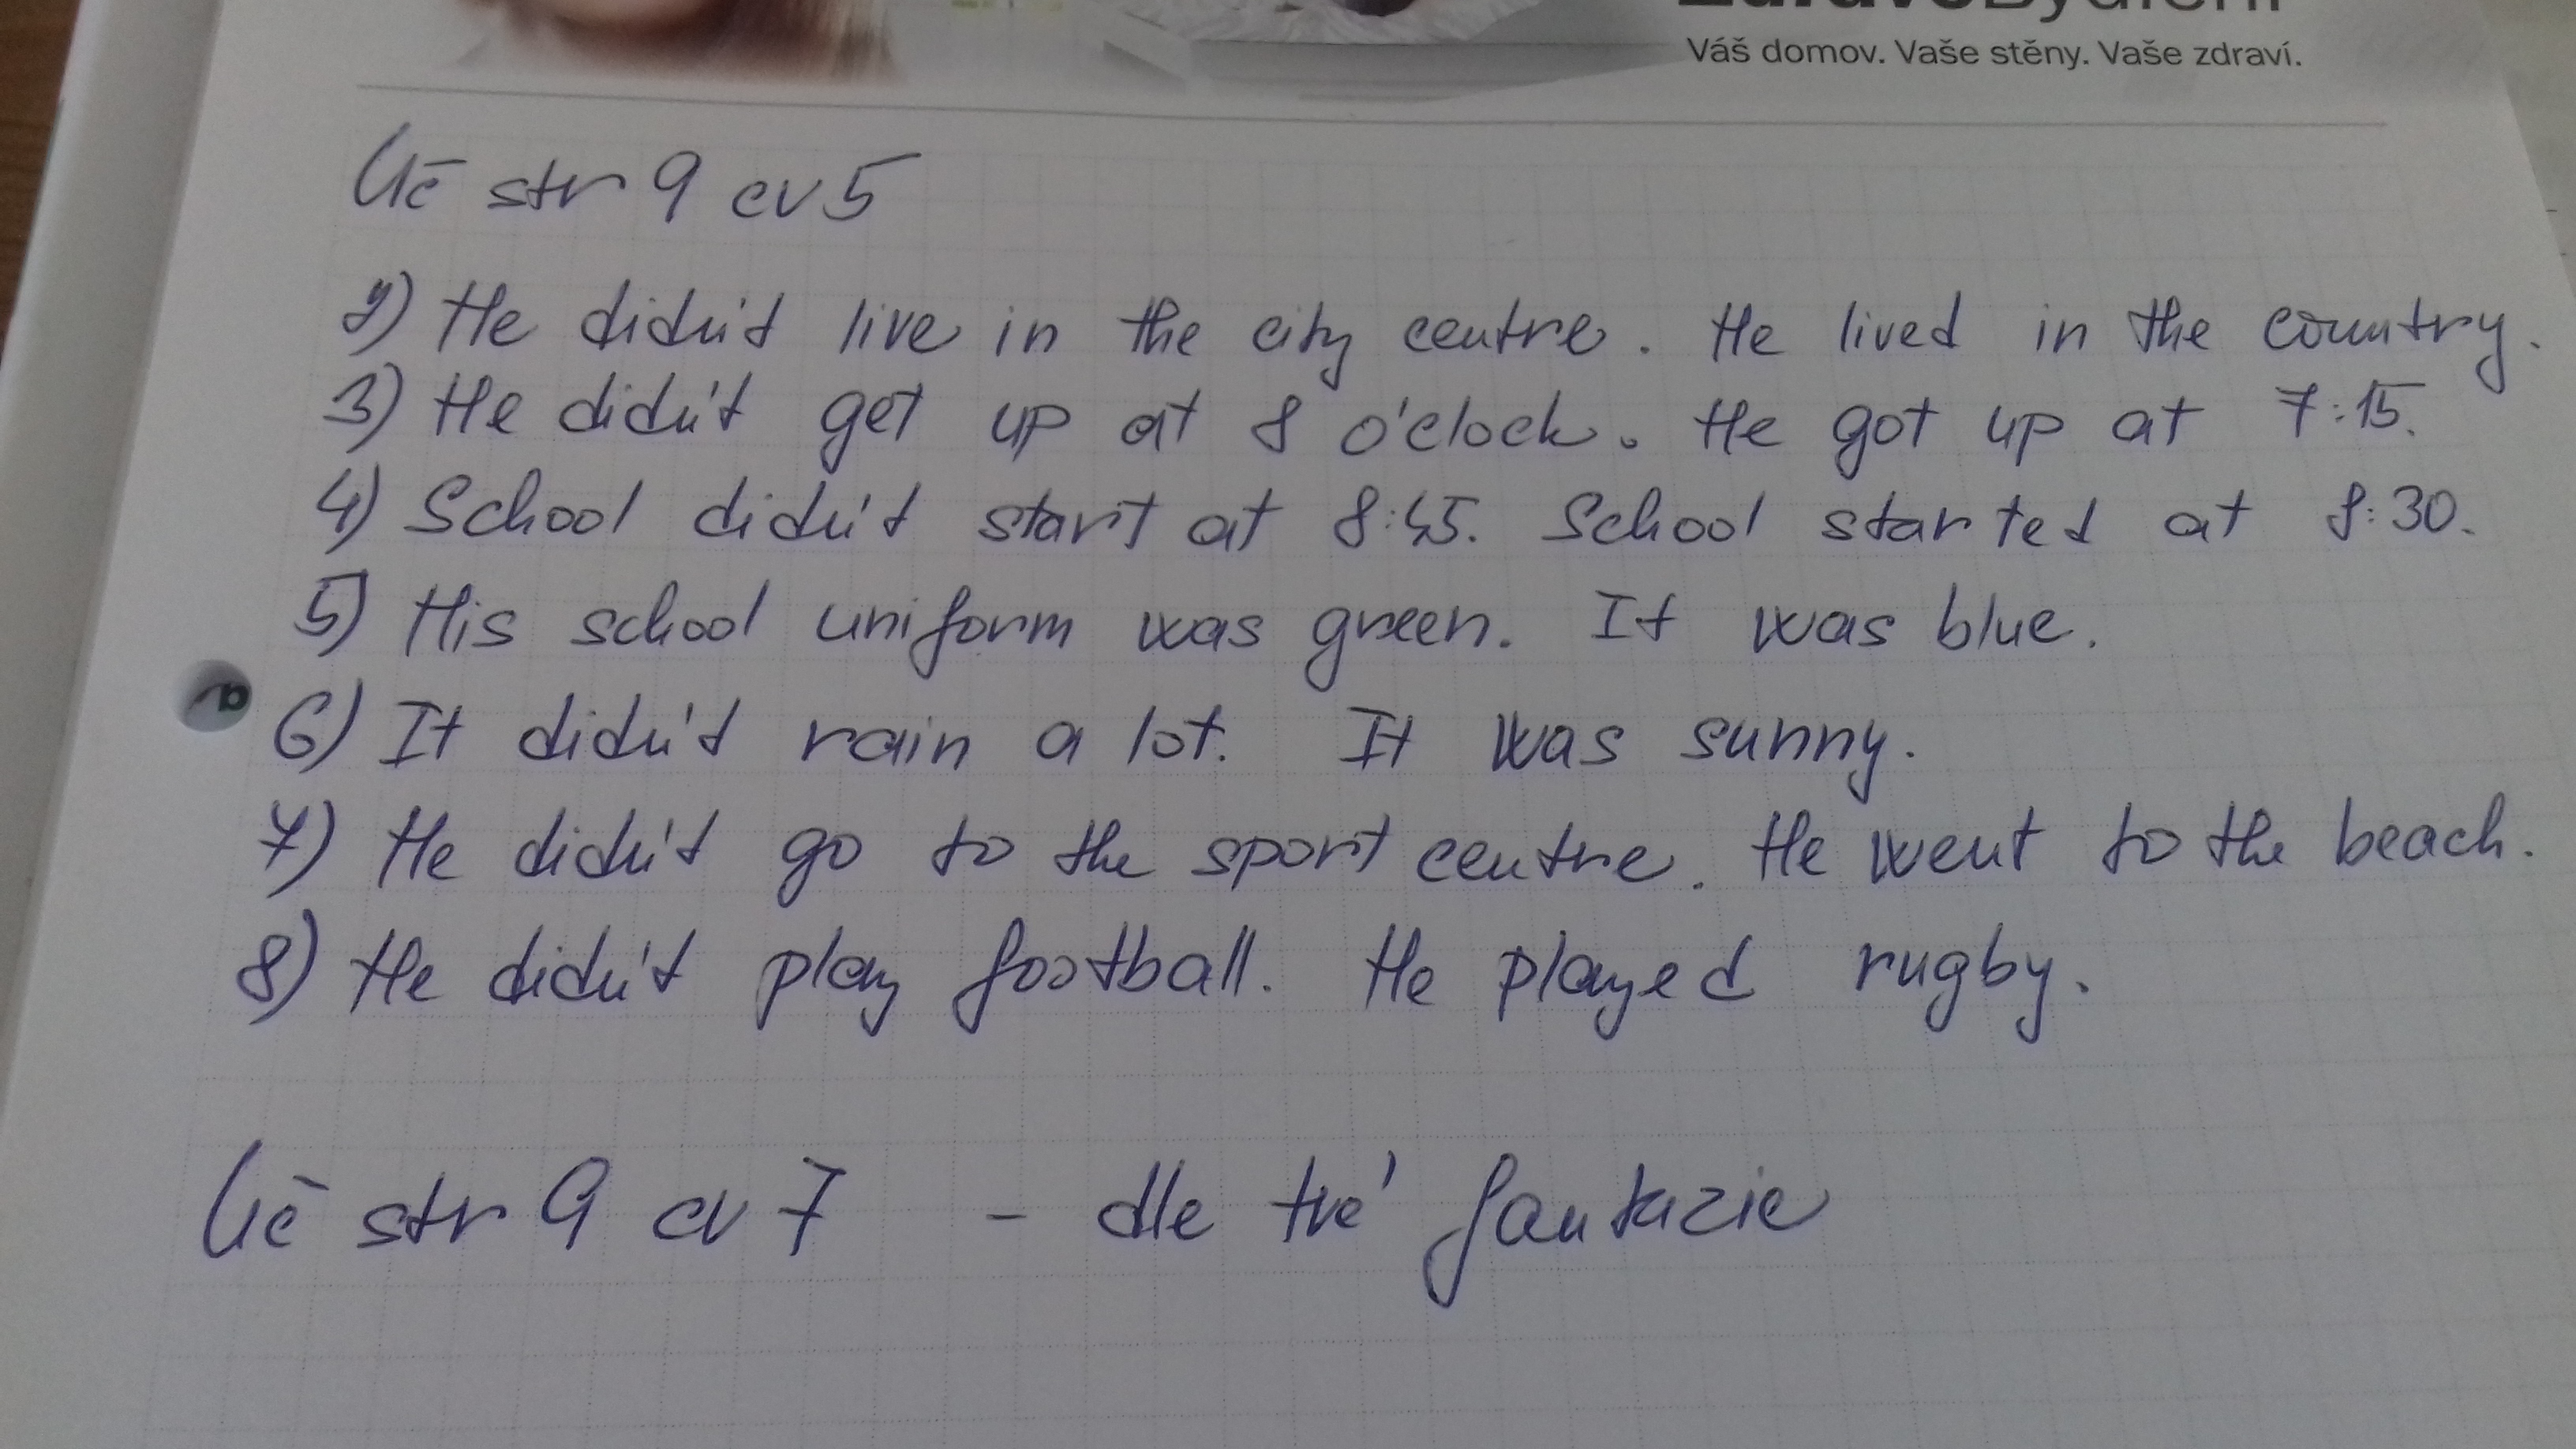 Váš domov. Vaše stěny. Vaše zdraví.
Uč str 9 cv 5
2) He didn't live in the city centre. He lived in the country.
3) He didn't get up at 8 o'clock. He got up at 7:15.
4) School didn't start at 8:45. School started at 8:30.
5) His school uniform was green. It was blue.
6) It didn't rain a lot. It was sunny.
7) He didn't go to the sport centre. He went to the beach.
8) He didn't play football. He played rugby.
Uč str 9 cv 7 - dle tvé fantazie